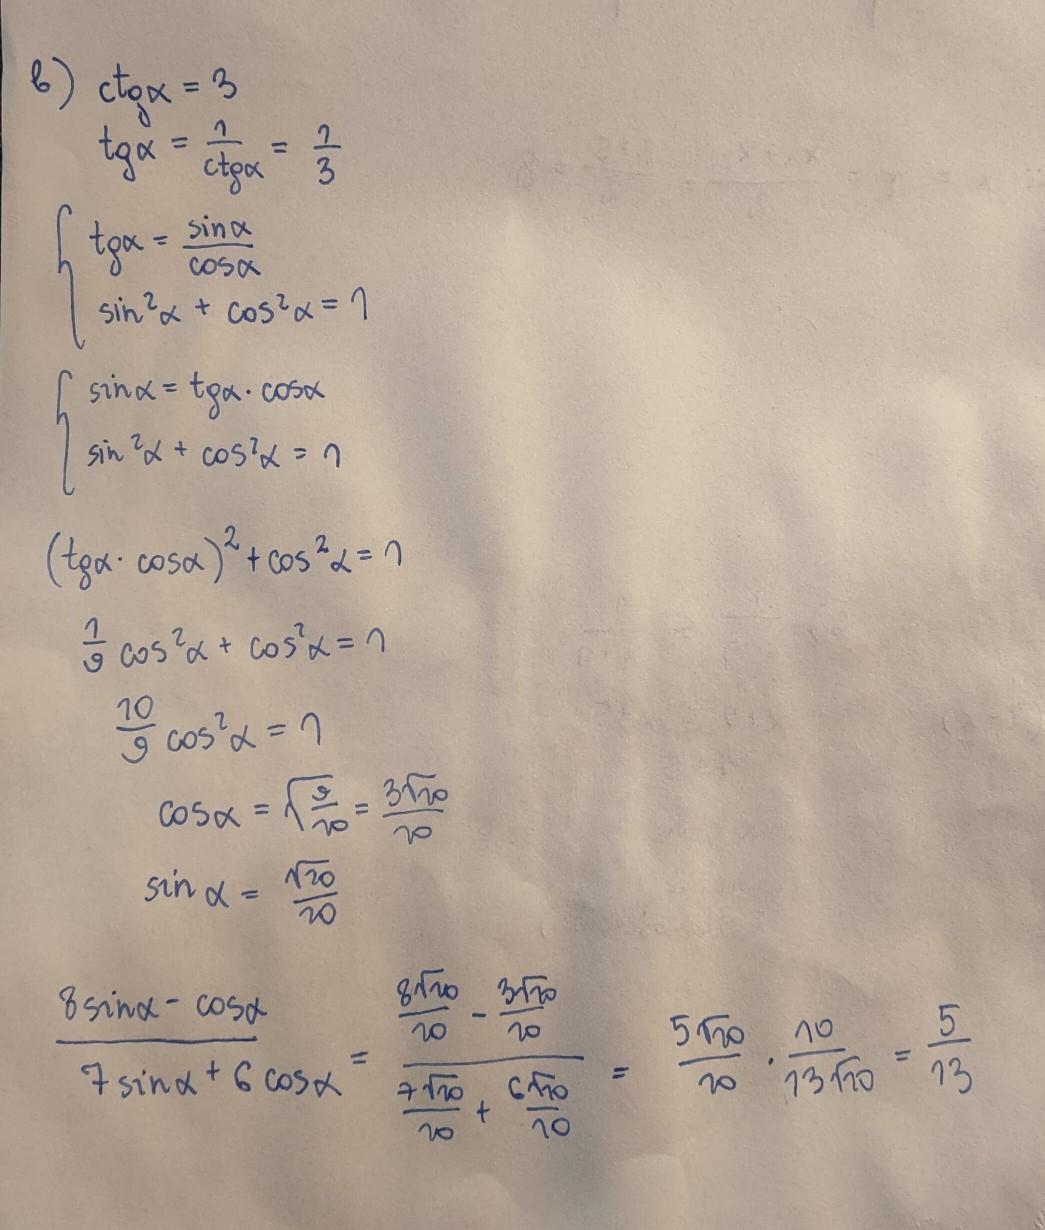 b) ctgα = 3
tgα = 1/ctgα = 1/3
{ tgα = sinα/cosα
sin²α + cos²α = 1
{ sinα = tgα · cosα
sin²α + cos²α = 1
(tgα · cosα)² + cos²α = 1
1/9 cos²α + cos²α = 1
10/9 cos²α = 1
cosα = √(9/10) = 3√10/10
sinα = √10/10
(8sinα - cosα)/(7sinα + 6cosα) = (8√10/10 - 3√10/10)/(7√10/10 + 6√10/10) = 5√10/10 · 10/(13√10) = 5/13